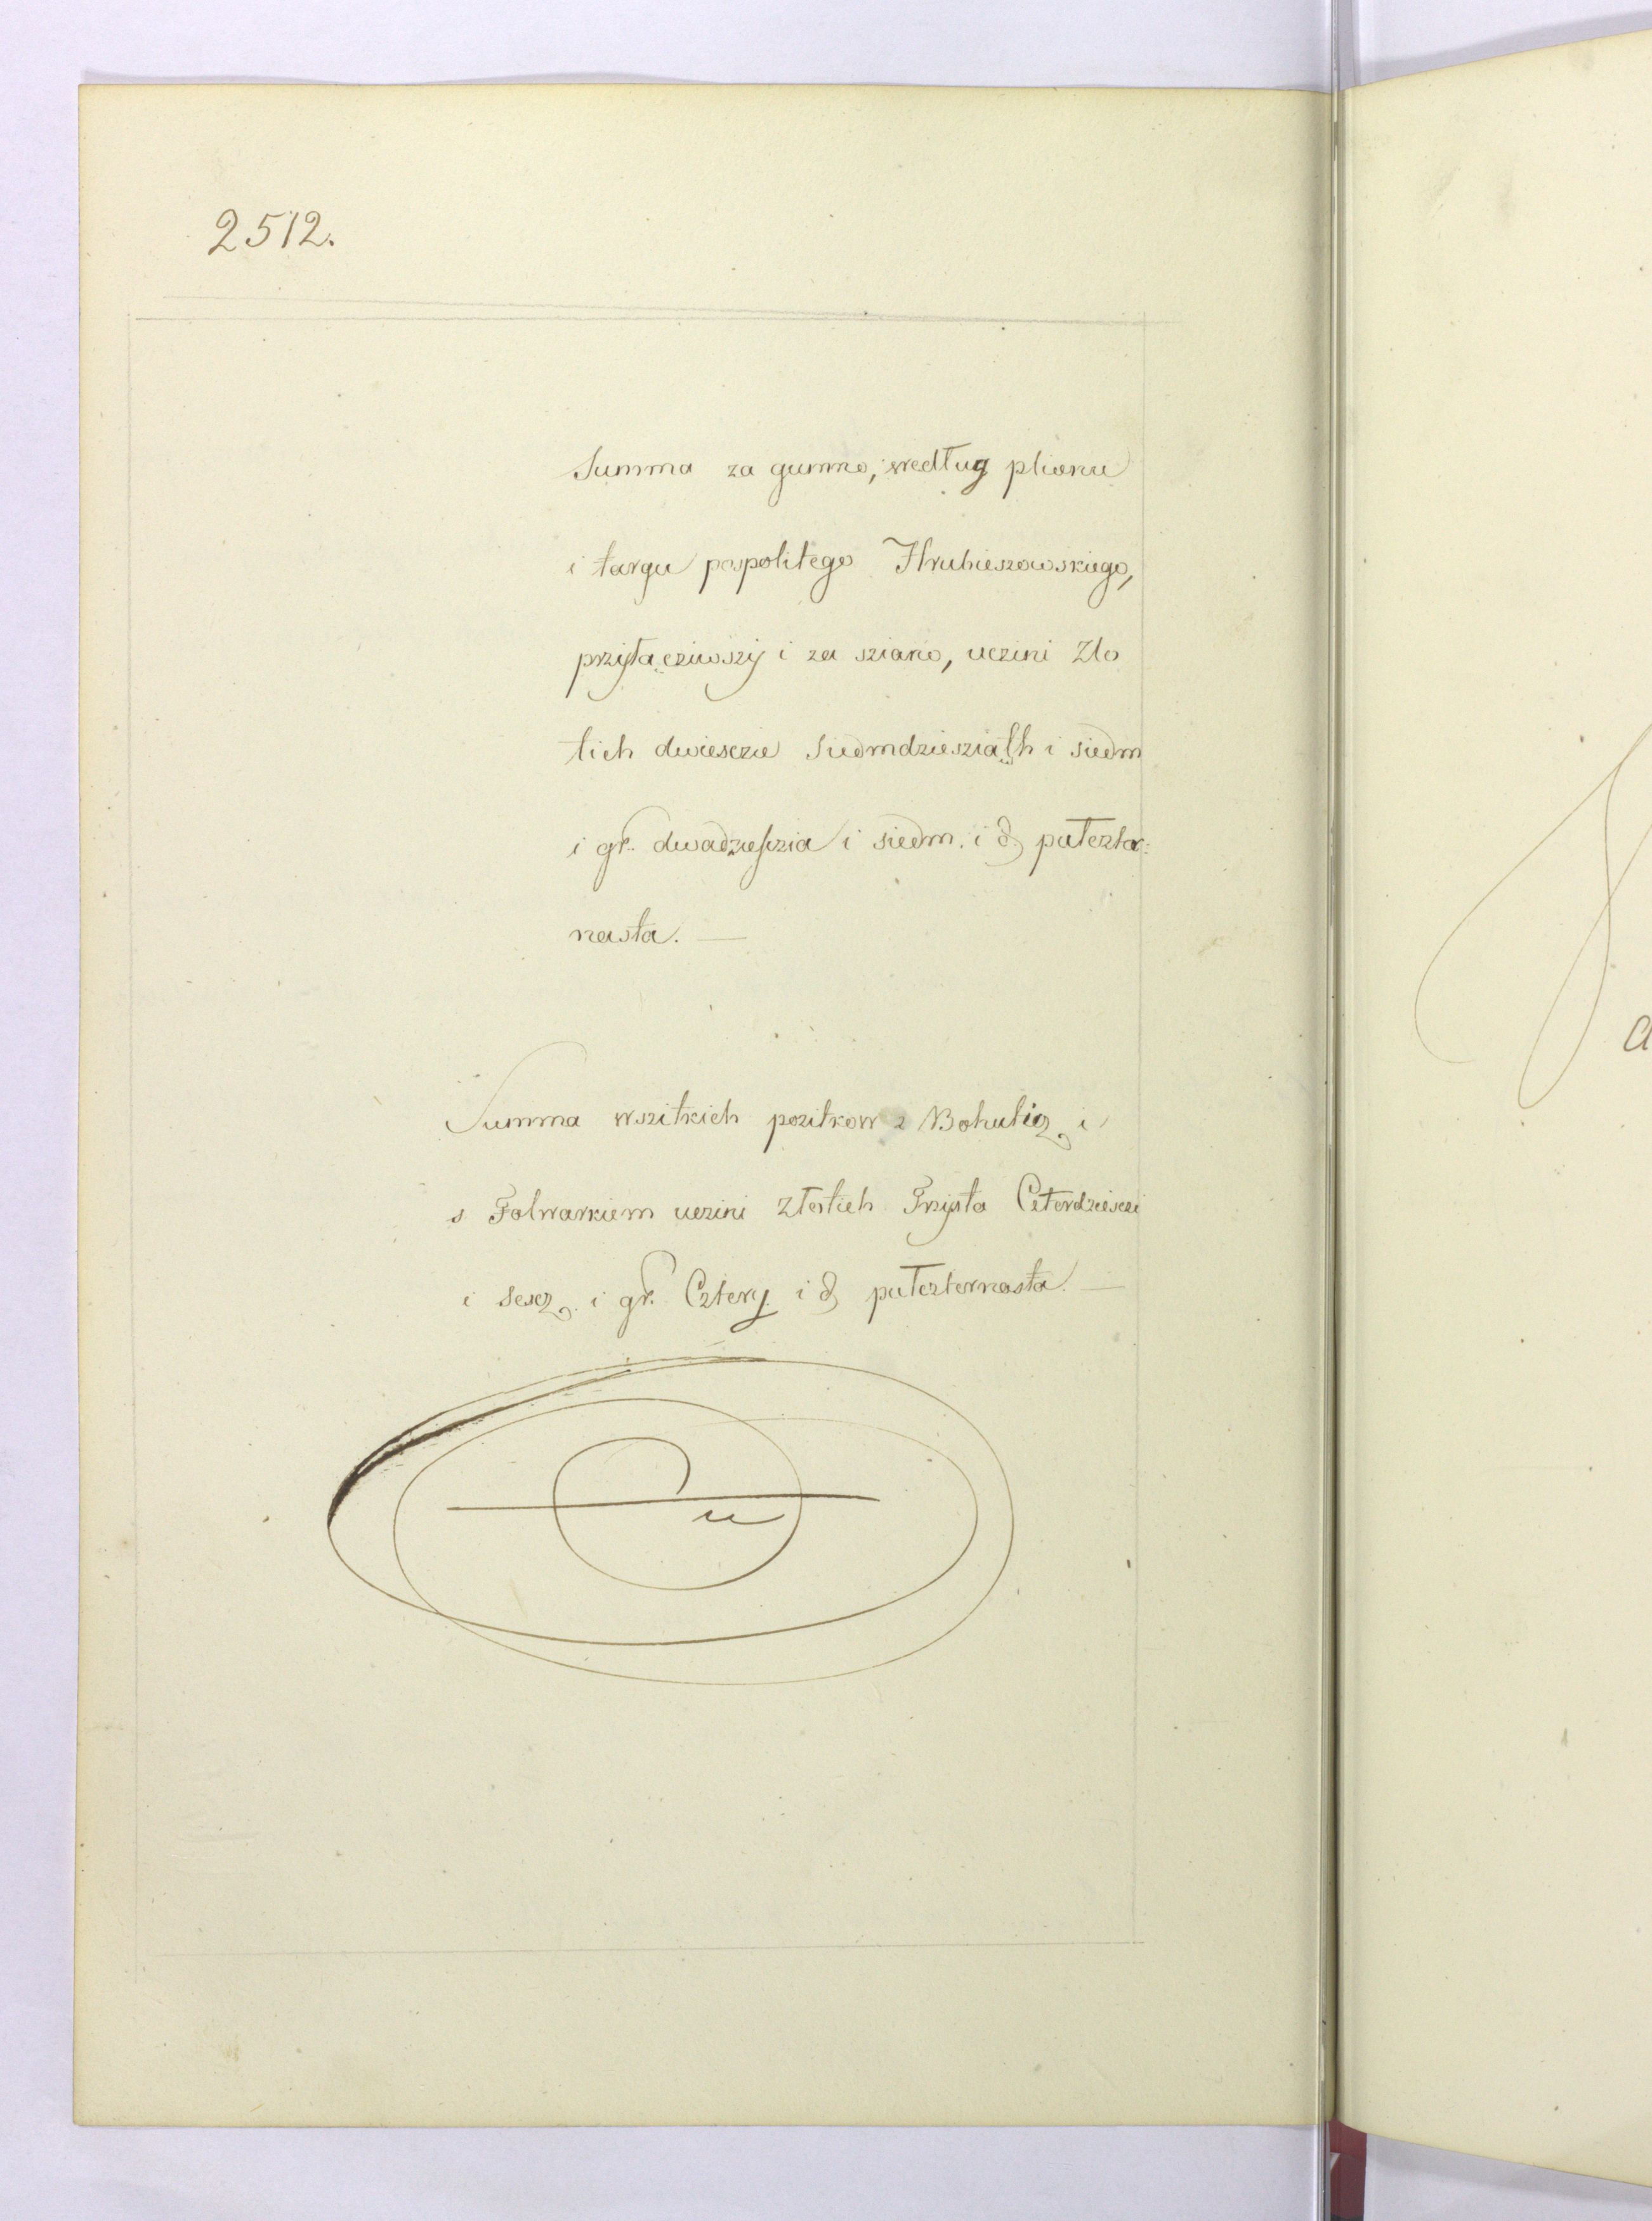 2512.
Summa za gumno, według plionu
i targu pospolitego Hrubieszowskiego,
przyłącziwszy i za sziano, uczini Zło
tich dwieszcie Siedmdziesziąth i siedm
i gr. dwadzieszczia i siedm. i d. pułczta:
nasta. —
Summa wszitkich pozitkow z Bohuticz i
s Folwarkiem uczini złotich Trzysta Czterdziesczi
i sescz. i gr. Cztery i d. pułczternasta. —